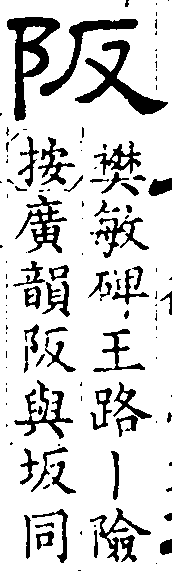 阪
樊敏碑王路丨險
按廣韻阪與坂同